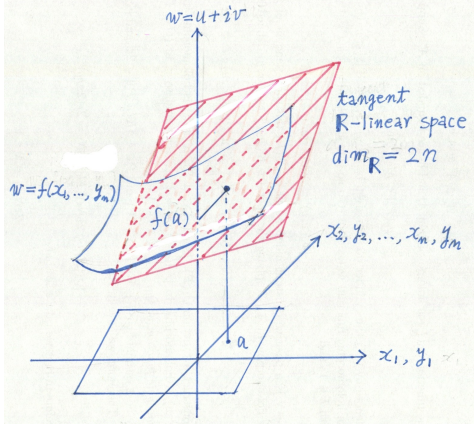 w=u+iv
tangent
R-linear space
dim_R = 2n
w=f(x₁,...,yₙ)
f(a)
x₂,y₂,...,xₙ,yₙ
a
x₁, y₁